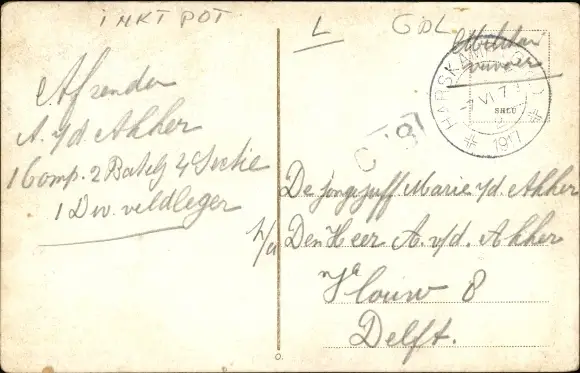 INKT POT
L
GDL
Militair
Afzender
A. v/d. Akker
1 Comp. 2 Batalj 4 Sectie
1 Div. veldleger
HARSKAMP
VI 7
1917
De jongejuff Marie v/d Akker
Den Heer A. v/d. Akker
8
Delft.